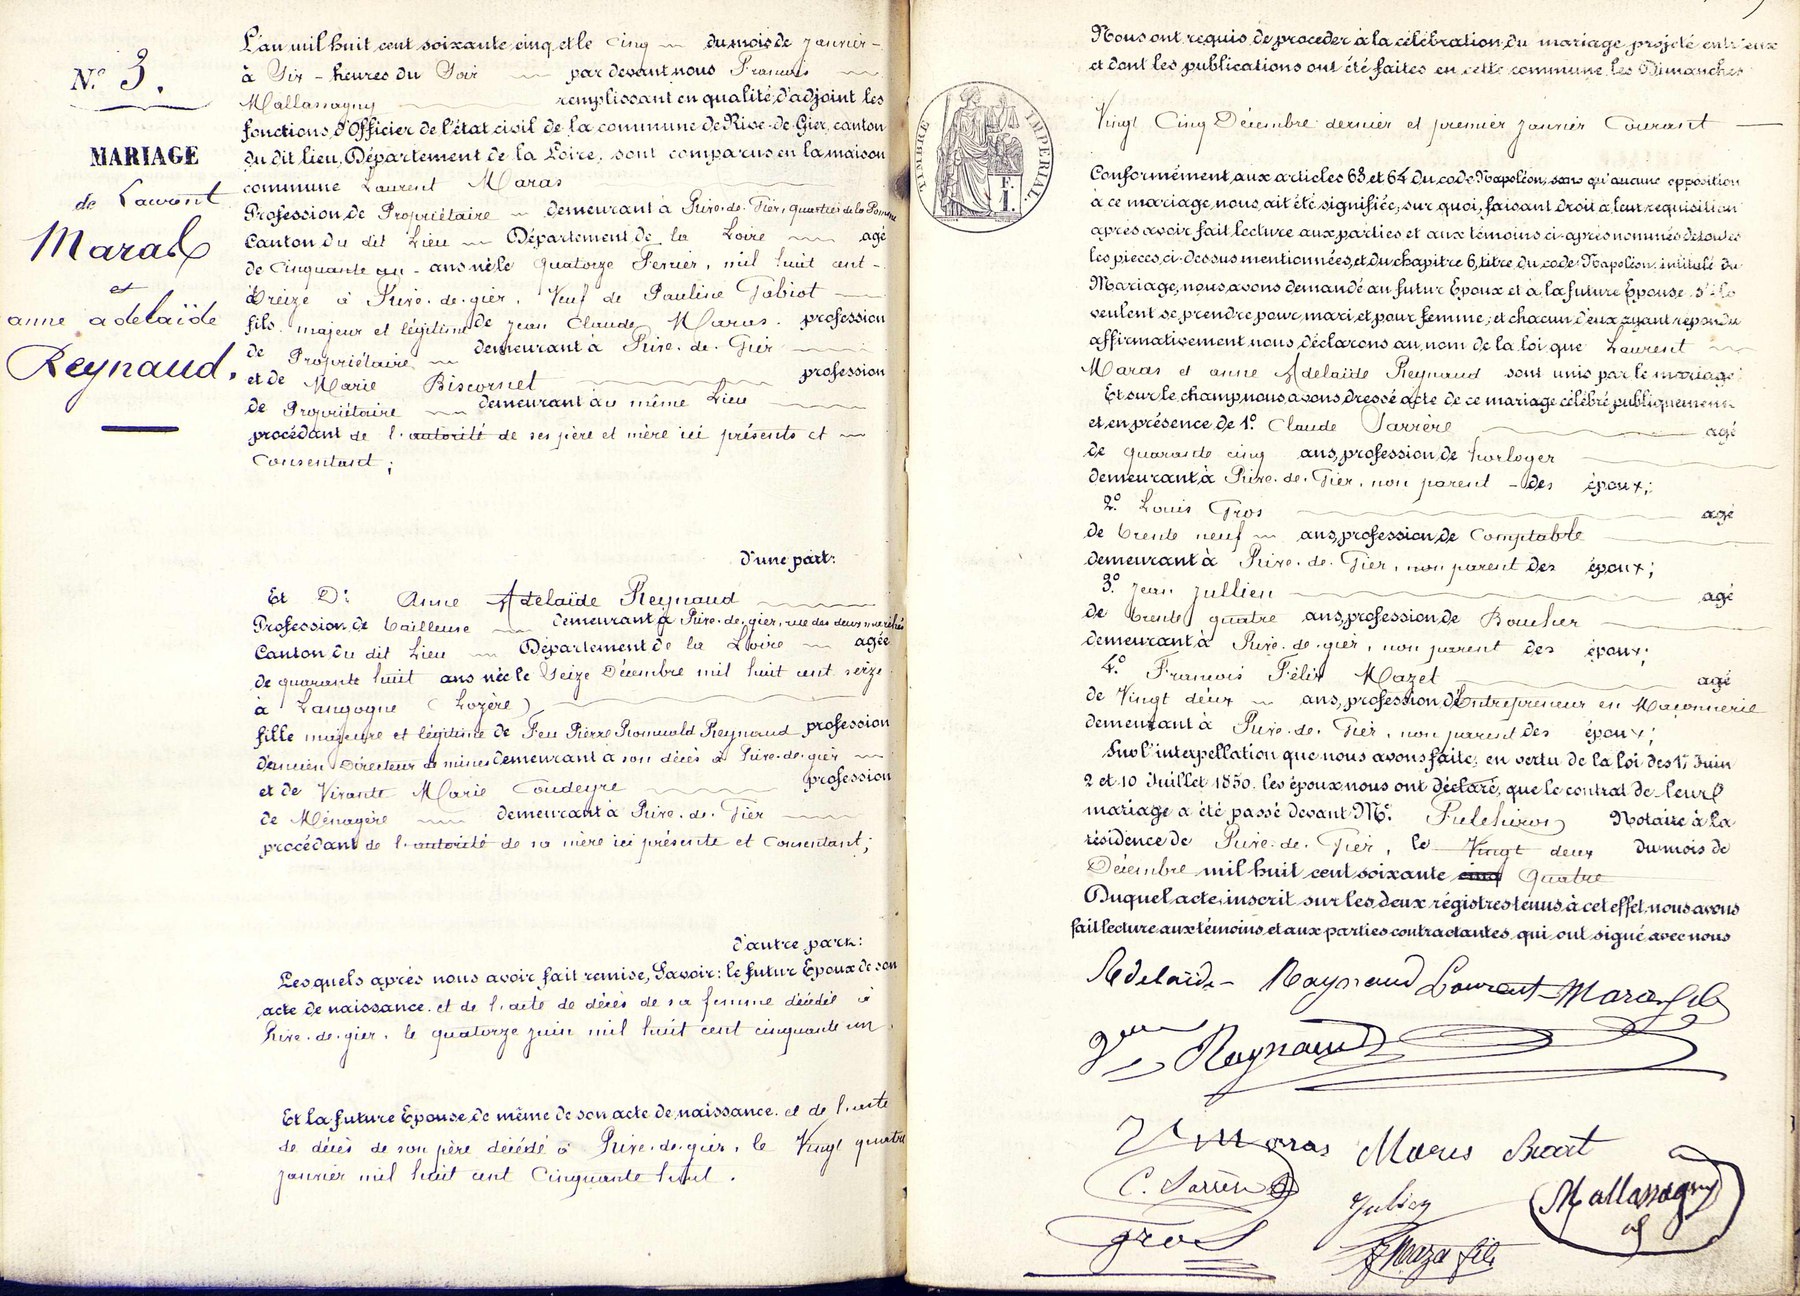 N.° 3.
MARIAGE
de Laurent
Maras
et
anne adelaïde
Reynaud.
L'an mil huit cent soixante cinq et le cinq du mois de janvier
à Six heures du Soir par devant nous François
Mallassagny remplissant en qualité d'adjoint les
fonctions d'Officier de l'état civil de la commune de Rive-de-Gier, canton
du dit lieu, Département de la Loire, sont comparus en la maison
commune Laurent Maras
Profession de Propriétaire demeurant à Rive-de-Gier, quartier de la
Canton du dit Lieu Département de la Loire agé
de Cinquante un ans né le quatorze Fevrier, mil huit cent
treize à Rive-de-gier, Veuf de Pauline Gabiot
fils majeur et légitime de Jean Claude Maras profession
de Propriétaire demeurant à Rive-de-Gier
et de Marie Biscornet profession
de Propriétaire demeurant au même Lieu
procédant de l'autorité de ses père et mère ici présents et
Consentant;
d'une part:
Et D.e Anne Adelaïde Reynaud
Profession de tailleuse demeurant à Rive-de-gier, rue des deux marchés
Canton du dit Lieu Département de la Loire agée
de quarante huit ans née le Seize Décembre mil huit cent seize
à Langogne (Lozère)
fille majeure et légitime de Feu Pierre Romuald Reynaud profession
d'ancien Directeur de mines demeurant à son décès à Rive-de-gier
et de Vivante Marie Coudeyre profession
de Ménagère demeurant à Rive-de-Gier
procédant de l'autorité de sa mère ici présente et Consentant;
d'autre part:
Lesquels après nous avoir fait remise, Savoir: le futur Epoux de son
acte de naissance et de l'acte de décès de sa femme décédée à
Rive-de-gier, le quatorze juin mil huit cent cinquante un.
Et la future Epouse de même de son acte de naissance et de l'acte
de décès de son père décédé à Rive-de-gier, le Vingt quatre
janvier mil huit cent Cinquante huit.
TIMBRE IMPÉRIAL.
F.
1.
Nous ont requis de procéder à la célébration du mariage projeté entr'eux
et dont les publications ont été faites en cette commune les Dimanches
Vingt Cinq Décembre dernier et premier janvier Courant
Conformément aux articles 63 et 64 du code Napoléon, sans qu'aucune opposition
à ce mariage nous ait été signifiée, sur quoi, faisant droit à leur requisition
après avoir fait lecture aux parties et aux témoins ci-après nommés de toutes
les pieces ci-dessus mentionnées et du chapitre 6, titre du code Napoléon intitulé du
Mariage, nous avons demandé au futur Epoux et à la future Epouse s'ils
veulent se prendre pour mari et pour femme; et chacun d'eux ayant répondu
affirmativement nous déclarons au nom de la loi que Laurent
Maras et anne Adelaïde Reynaud sont unis par le mariage
Et sur le champ nous avons dressé acte de ce mariage célébré publiquement
et en présence de 1.° Claude Sarrère agé
de quarante cinq ans, profession de horloger
demeurant à Rive-de-Gier, non parent des époux;
2.° Louis Gros agé
de trente neuf ans, profession de Comptable
demeurant à Rive-de-Gier, non parent des époux;
3.° Jean Jullien agé
de trente quatre ans, profession de Boucher
demeurant à Rive-de-gier, non parent des époux;
4.° François Félix Mazet agé
de Vingt deux ans, profession d'Entrepreneur en Maçonnerie
demeurant à Rive-de-Gier, non parent des époux;
Sur l'interpellation que nous avons faite, en vertu de la loi des 17 Juin
2 et 10 Juillet 1850, les époux nous ont déclaré, que le contrat de leur
mariage a été passé devant M.e Pulchiron Notaire à la
résidence de Rive-de-Gier, le Vingt deux du mois de
Décembre mil huit cent soixante cinq Quatre
Duquel acte, inscrit sur les deux régistres tenus à cet effet, nous avons
fait lecture aux témoins et aux parties contractantes, qui ont signé avec nous
Adelaïde Raynaud Laurent Maras fils
Vve Raynaud
Maras Maras
C. Sarrère Julien Mallassagny
Gros Maza fils